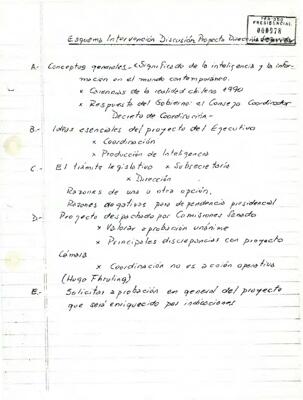 PRESIDENCIAL
000978
Esquema Intervención Discusión Proyecto Dirección
A.- Conceptos generales - Significado de la inteligencia y la infor-
macion en el mundo contemporáneo.
x Carencias de la realidad chilena 1990
x Respuesta del Gobierno: el Consejo Coordinador
Decreto de Coordinación -
B.- Ideas esenciales del proyecto del Ejecutivo
x Coordinación
x Producción de Inteligencia
C.- El trámite legislativo x Subsecretaría
x Dirección
Razones de una u otra opción.
Razones negativas para dependencia presidencial
D.- Proyecto despachado por Comisiones Senado
x Valorar aprobación unánime
x Principales discrepancias con proyecto
Cámara
x Coordinación no es acción operativa
(Hugo Fhruling)
E.- Solicitar aprobación en general del proyecto
que será enriquecido por indicaciones